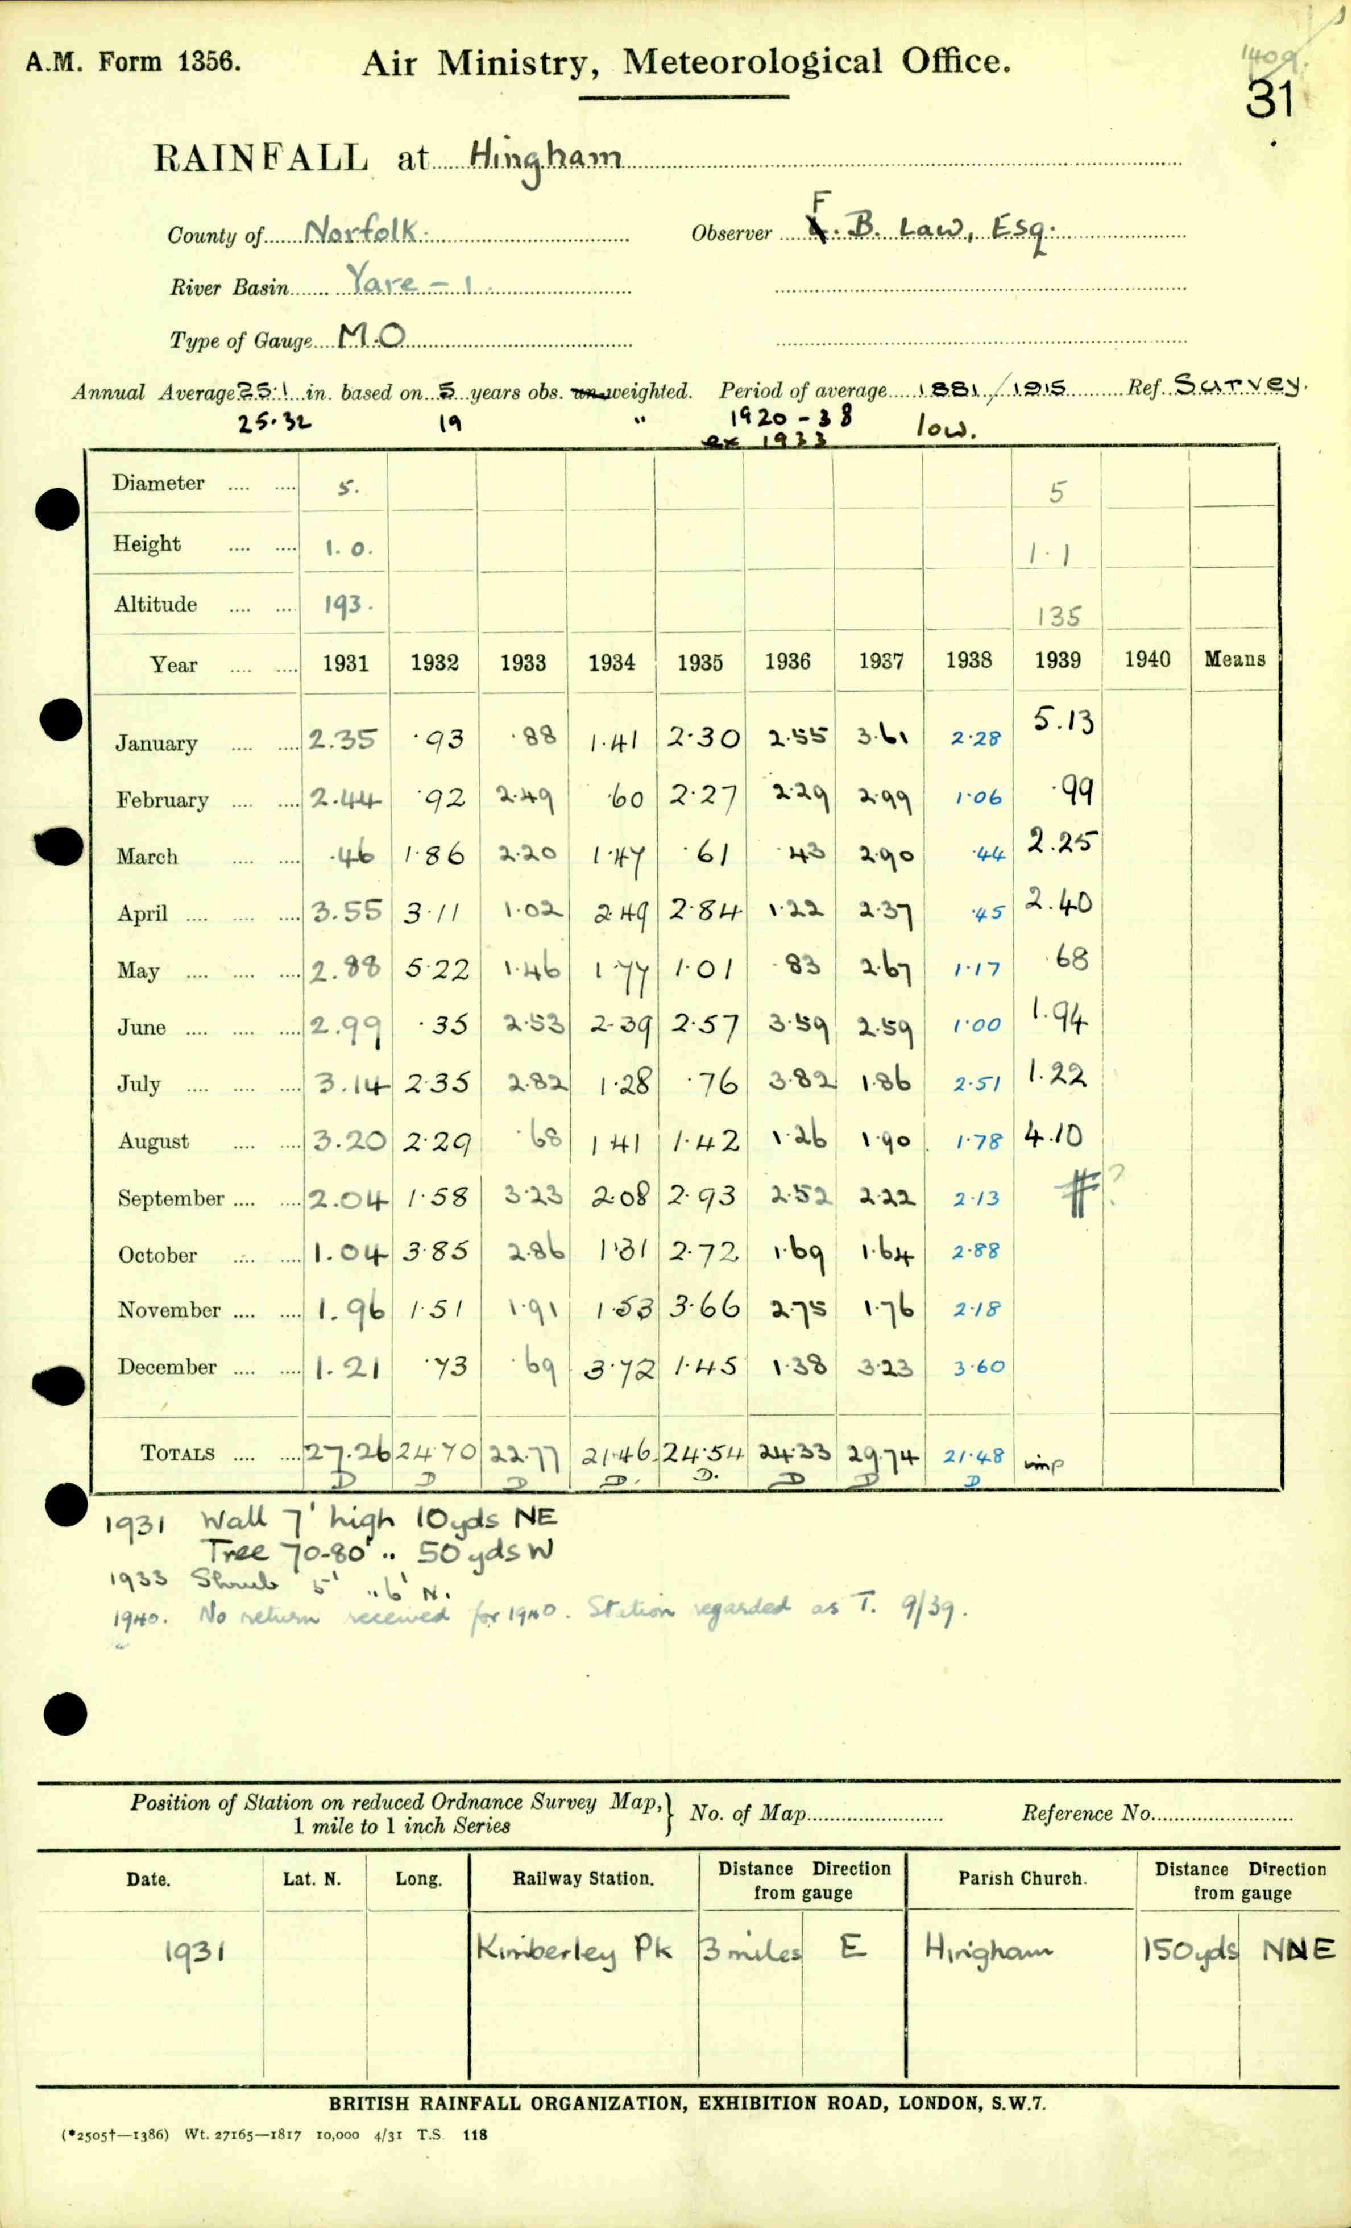 1409.
A.M. Form 1356. Air Ministry, Meteorological Office.
31
RAINFALL at Hingham
County of Norfolk. Observer F. B. Law, Esq.
River Basin Yare - 1.
Type of Gauge M.O
Annual Average 25.1 in. based on 5 years obs. un-weighted. Period of average 1881/1915 Ref. Survey.
25.32 19 " 1920-38 low.
ex 1933
Diameter .... .... 5. 5
Height .... .... 1.0. 1.1
Altitude .... .... 193. 135
Year .... .... 1931 1932 1933 1934 1935 1936 1937 1938 1939 1940 Means
January .... .... 2.35 .93 .88 1.41 2.30 2.55 3.61 2.28 5.13
February .... .... 2.44 .92 2.49 .60 2.27 2.29 2.99 1.06 .99
March .... .... .46 1.86 2.20 1.47 .61 .43 2.90 .44 2.25
April .... .... .... 3.55 3.11 1.02 2.49 2.84 1.22 2.37 .45 2.40
May .... .... .... 2.88 5.22 1.46 1.77 1.01 .83 2.67 1.17 .68
June .... .... .... 2.99 .35 2.53 2.39 2.57 3.59 2.59 1.00 1.94
July .... .... .... 3.14 2.35 2.82 1.28 .76 3.82 1.86 2.51 1.22
August .... .... 3.20 2.29 .68 1.41 1.42 1.26 1.90 1.78 4.10
September .... .... 2.04 1.58 3.23 2.08 2.93 2.52 2.22 2.13 # ?
October .... .... 1.04 3.85 2.86 1.31 2.72 1.69 1.64 2.88
November .... .... 1.96 1.51 1.91 1.53 3.66 2.75 1.76 2.18
December .... .... 1.21 .73 .69 3.72 1.45 1.38 3.23 3.60
TOTALS .... .... 27.26 24.70 22.77 21.46 24.54 24.33 29.74 21.48 imp
D D D D. D. D D D
1931 Wall 7' high 10yds NE
Tree 70-80' " 50yds W
1933 Shrub 5' " 6' N.
1940. No return received for 1940. Station regarded as T. 9/39.
Position of Station on reduced Ordnance Survey Map, } No. of Map Reference No.
1 mile to 1 inch Series
Date. Lat. N. Long. Railway Station. Distance Direction from gauge Parish Church. Distance Direction from gauge
1931 Kimberley Pk 3 miles E Hingham 150yds NNE
BRITISH RAINFALL ORGANIZATION, EXHIBITION ROAD, LONDON, S.W.7.
(*2505†—1386) Wt. 27165—1817 10,000 4/31 T.S. 118